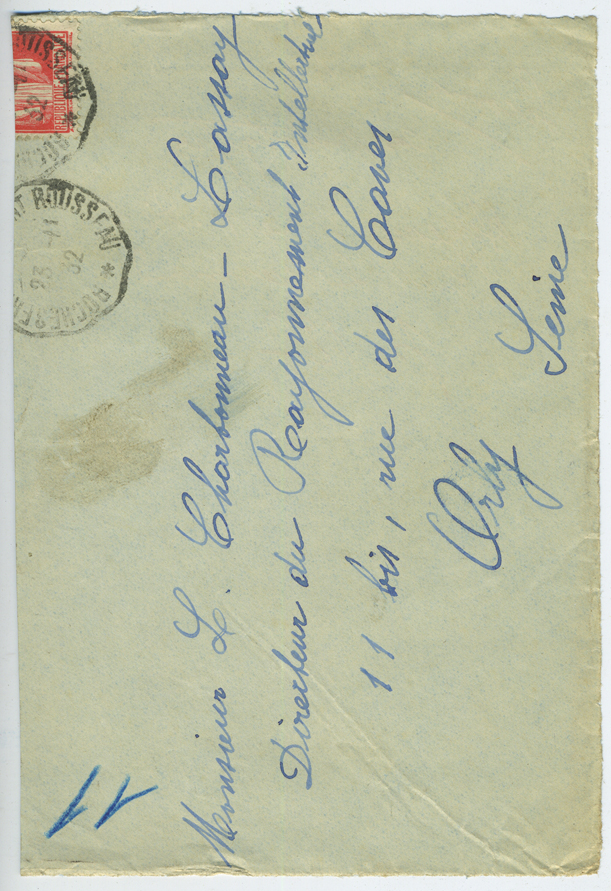 RÉPUBLIQUE FRANÇAISE
ROUSSEAU
ROUSSEAU * ROCHESER
23 - 11
32
Monsieur L. Charbonneau - Lassay
Directeur du Rayonnement Intellectuel
11 bis, rue des Caves
Orly
Seine